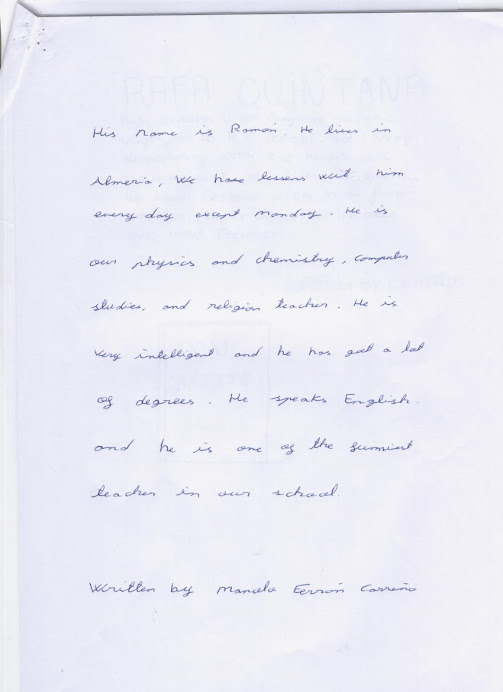 His name is Ramón. He lives in
Almería, We have lessens wit him
every day except monday. He is
our physics and chemistry, computer
studies, and religion teacher. He is
very intelligent and he has got a lot
of degrees. He speaks English.
and he is one of the funniest
teacher in our school.
Written by Manolo Ferrón Carreño
RAFA QUINTANA